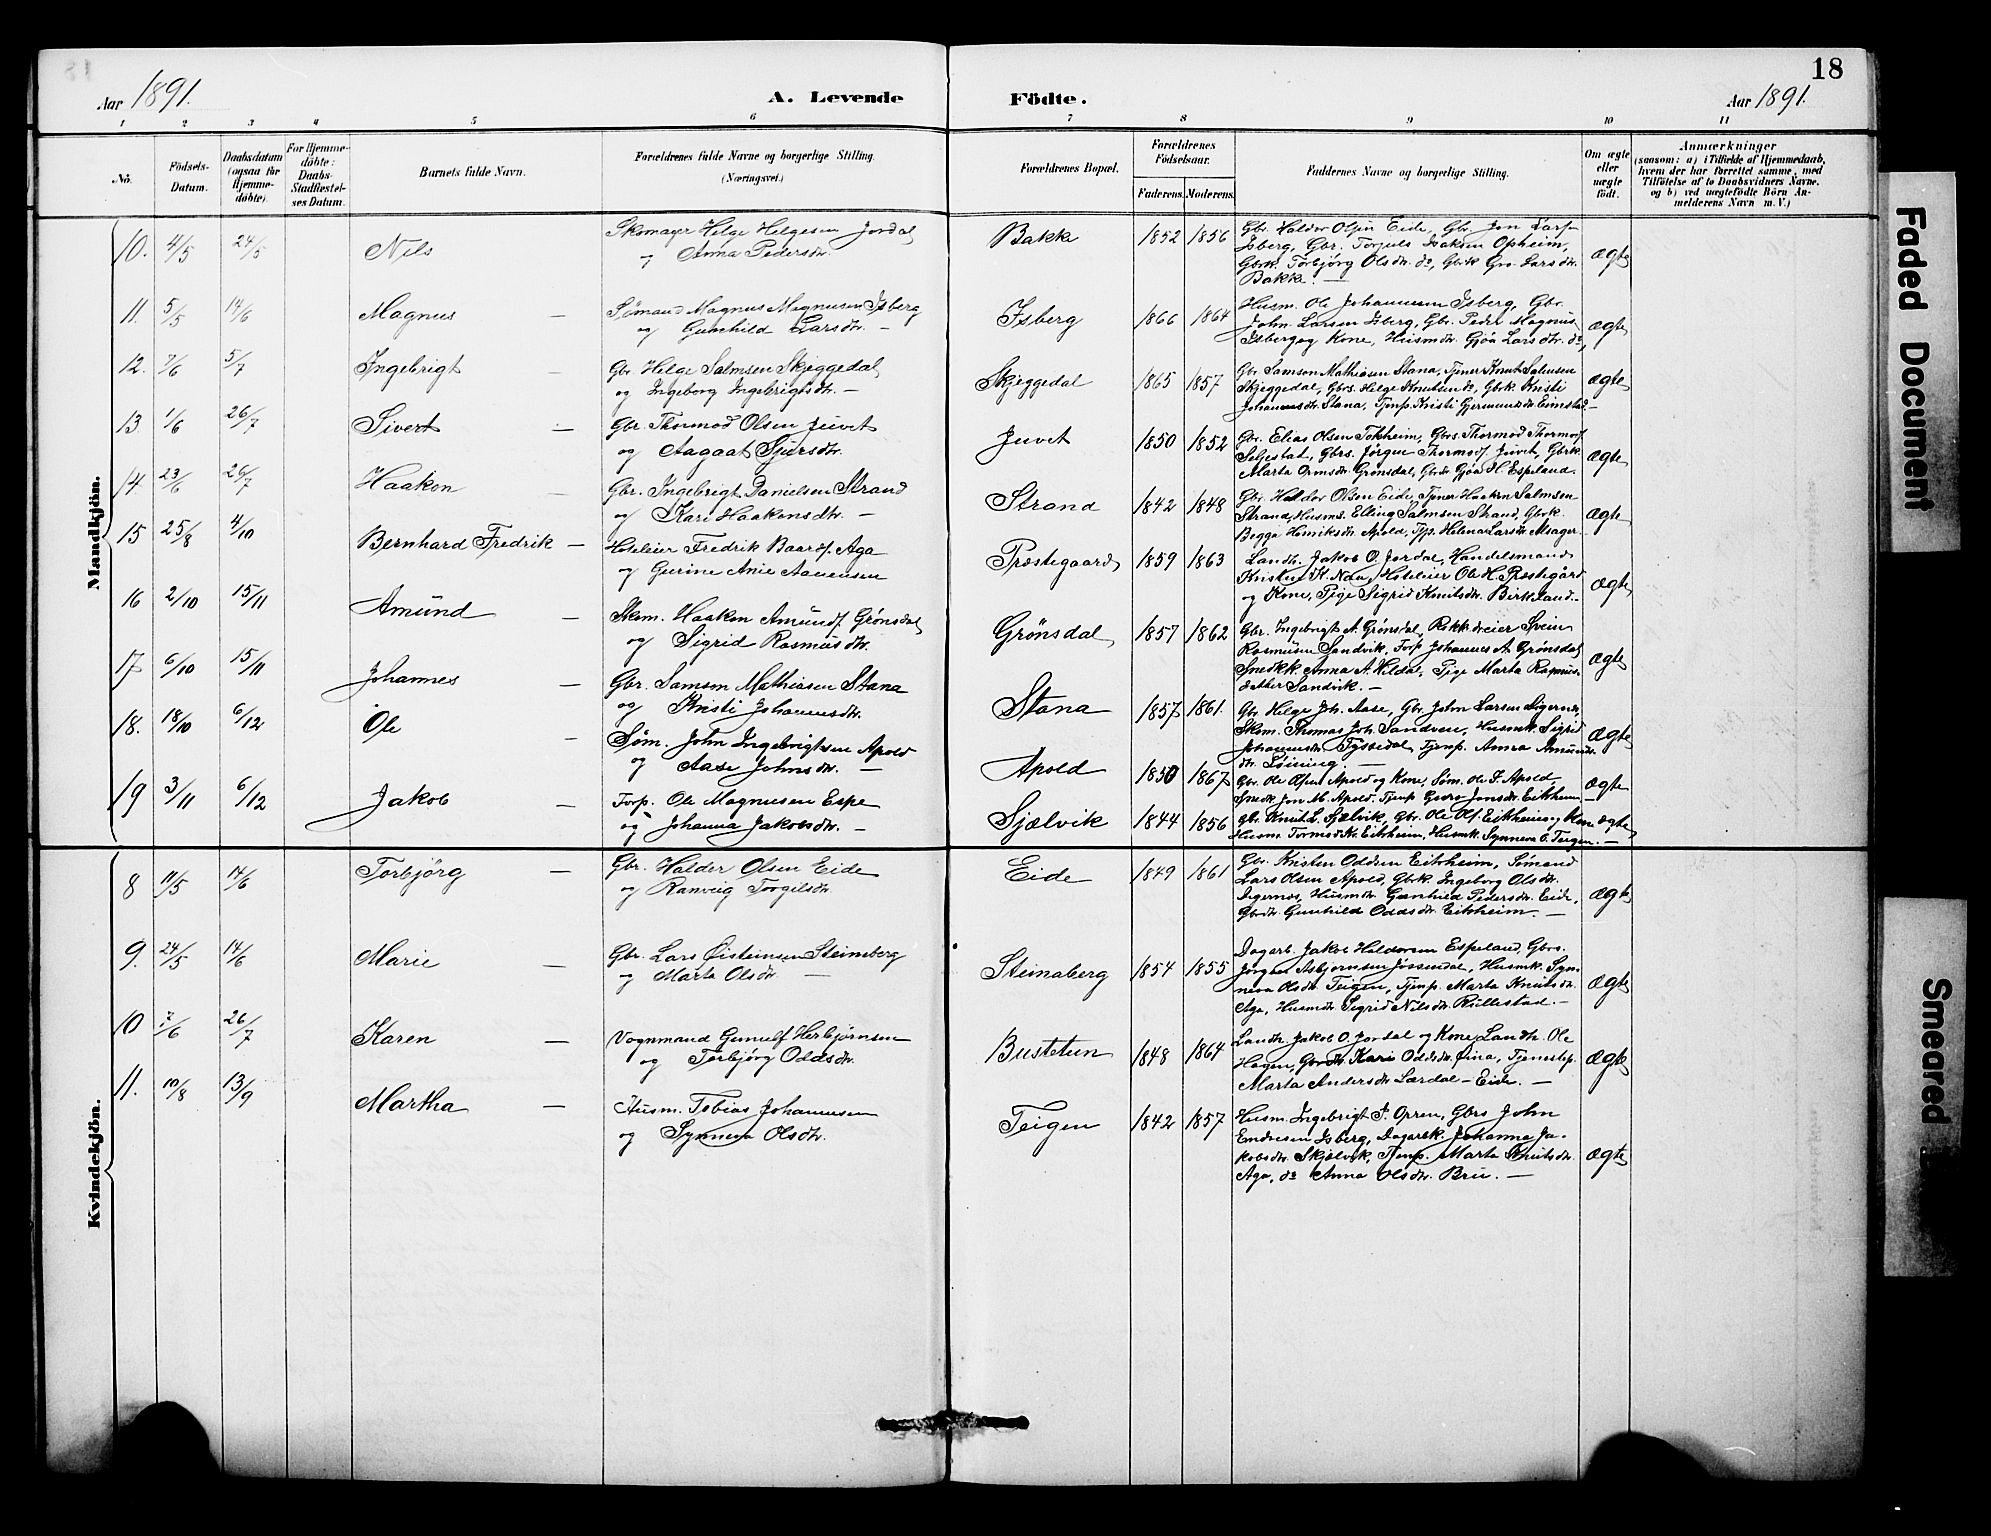 18
Aar 1891.
A. Levende Födte.
Aar 1891.
1 2 3 4 5 6 7 8 9 10 11
No.
Födsels-
Datum.
Daabsdatum
(ogsaa for
Hjemme-
døbte).
For Hjemme-
døbte:
Daabs-
Stadfæstel-
ses Datum.
Barnets fulde Navn.
Forældrenes fulde Navne og borgerlige Stilling.
(Næringsvei.)
Forældrenes Bopæl.
Forældrenes
Födselsaar.
Faderens. Moderens.
Faddernes Navne og borgerlige Stilling.
Om ægte
eller
uægte
født.
Anmærkninger
(saasom: a) i Tilfælde af Hjemmedaab,
hvem der har forrettet samme, med
Tilføielse af to Daabsvidners Navne,
og b) ved uægtefödte Börn An-
melderens Navn m. V.)
Mandkjön.
10. 4/5 24/5 Nils
Skomager Helge Helgesen Jordal
og Anna Pedersdtr.
Bakke 1852 1856
Gbr. Haldor Olsen Eide, Gbr. Jon Lars-
Isberg, Gbr. Torjuls Isaksen Opheim,
Gbrk. Torbjörg Olsdtr. do, Gbrk Gro Larsdtr.
Bakke. —
ægte
11. 5/5 14/6 Magnus —
Sømand Magnus Magnusen Isberg
og Gunhild Larsdtr. —
Isberg 1866 1864
Husm. Ole Johannesen Isberg, Gbr.
John Larsen Isberg, Gbr. Peder Magnus
Isberg og Kone, Husmdtr. Gjøa Larsdtr. do,
ægte
12. 7/6 5/7 Ingebrigt —
Gbr. Helge Salmsen Skjeggedal
og Ingeborg Ingebrigtsdtr. —
Skjeggedal 1865 1857
Gbr Samson Mathiasen Stana, Tjener Knut Salmsen
Skjeggedal, Gbrs. Helge Knutsen do, Gbrk Kristi
Johannesdtr. Stana, Tjenp. Kristi Gjermundsdtr Eimstad.—
ægte
13. 1/6 26/7 Sivert —
Gbr. Thormod Olsen Juvet
og Aagaat Sjursdtr.
Juvet 1850 1852
Gbr. Elias Olsen Tokheim, Gbrs. Thormod Thormods
Seljestad, Gbrs. Jørgen Thormods Juvet, Gbrk.
Marta Ormsdtr. Grønsdal, Gbrdtr Gjøa H. Espeland.
ægte
14. 23/6 26/7 Haakon —
Gbr. Ingebrigt Danielsen Strand
og Kari Haakonsdtr. —
Strand 1842 1848
Gbr. Haldor Olsen Eide, Tjener Haaken Salmsen
Strand, Husms. Elling Salmsen Strand, Gbrk.
Begga Henriksdtr. Apold, Tjp. Helena Larsdtr. Alsager.
ægte
15 25/8 4/10 Bernhard Fredrik —
Hoteleier Fredrik Baards. Aga
og Gurine Anie Aanensen
Præstegaard 1859 1863
Landh. Jakob O. Jordal, Handelsmand
Kristen K. Nau, Hoteleier Ole H. Præstegård
og Kone, Pige Sigrid Knutsdtr. Birkeland..
ægte
16 2/10 15/11 Amund —
Skom. Haakon Amunds. Grønsdal
og Sigrid Rasmusdtr.
Grønsdal 1857 1862
Gbr. Ingebrigt A. Grønsdal, Svein
Rasmusen Sandvik, Forp. Johannes A. Grønsdal
Snedkk. Anna A. Hildal, Pige Marta Rasmus-
datter Sandvik. —
ægte
17 6/10 15/11 Johannes —
Gbr. Samson Mathiasen Stana
og Kristi Johannesdtr.
Stana 1857 1861.
Gbr. Helge Joh. Aase, Gbr. John Larsen Digernes,
Skom. Thomas Joh. Sandven, Husmk. Sigrid
Johannesdtr Tyssedal, Tjenp. Anna Amunds-
dtr. Løining. —
ægte
18. 18/10 6/12 Ole —
Søm. John Ingebrigtsen Apold
og Aase Johnsdtr. —
Apold 1850 1867
Gbr. Ole Olsen Apold og Kone, Søm. Ole I. Apold
Snedk Jon M. Apold, Tjenp. Guro Jonsdtr. Eitrheim
ægte
19 3/11 6/12 Jakob —
Forp. Ole Magnusen Espe
og Johanna Jakobsdtr. —
Sjælvik 1844 1856
Gbr. Knut L. Sjælvik, Gbr. Ole Ols. Eitrheim og Kone
Husm. Tormod K. Eitrheim, Husmk. Synneva O. Teigen. —
ægte
Kvindekjön.
8 11/5 14/6 Torbjörg —
Gbr. Haldor Olsen Eide
og Ranveig Torgilsdtr.
Eide 1849 1861
Gbr. Kristen Oddsen Eitrheim, Sømand
Lars Olsen Apold, Gbrk. Ingeborg Olsdtr.
Digernes, Husmdtr. Gunhild Pedersdtr. Eide,
Gbrdtr. Gunhild Oddsdtr. Eitrheim. —
ægte
9. 24/5 14/6 Marie —
Gbr. Lars Øisteinsen Steinaberg
og Marta Olsdtr. —
Steinaberg 1854 1855
Dagarb. Jakob Haldorsen Espeland, Gbrs.
Jørgen Asbjørnsen Jøssendal, Husmk. Syn-
neva Olsdtr. Teigen, Tjenp. Marta Knutsdtr.
Aga, Husmdtr. Sigrid Nilsdtr. Rullestad. —
ægte
10 7/6 26/7 Karen —
Vognmand Gunulf Herbjørnsen
og Torbjørg Oddsdtr.
Bustetun 1848 1864
Landh. Jakob O. Jordal og Kone, Landh. Ole
Hagen, Gbrdtr. Kari Oddsdtr. Øina, Tjenestep.
Marta Andersdtr. Lærdal – Eide. —
ægte
11. 10/8 13/9 Martha —
Husm. Tobias Johannesen
og Synneva Olsdtr.
Teigen 1842 1857
Husm. Ingebrigt P. Opren, Gbrs John
Endresen Isberg, Dagarbk. Johanna Ja-
kobsdtr. Skjelvik, Tjenp. Marta Knutsdtr.
Aga, do Anna Olsdtr. Bru. —
ægte
Faded Document
Smeared